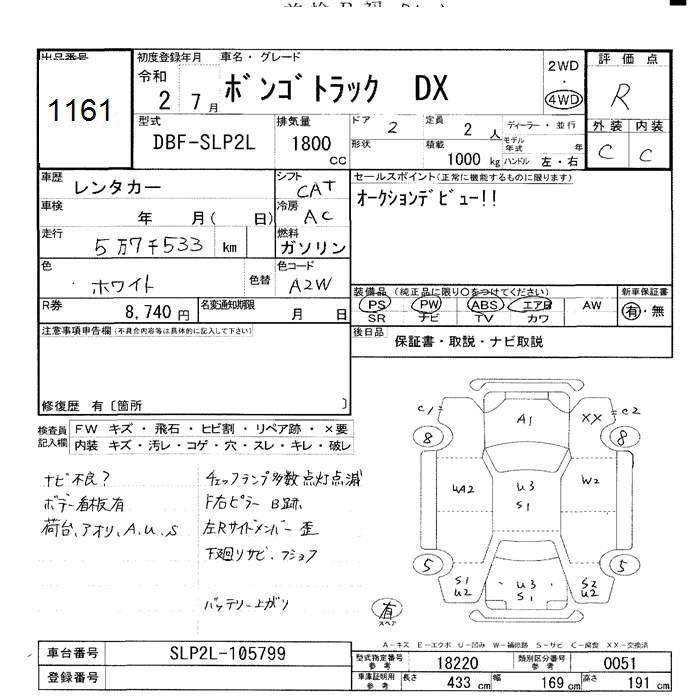 出品番号
1161
初度登録年月
令和
2 7月
車名・グレード
ボンゴトラック DX
2WD
・
4WD
評価点
R
外装 内装
C C
型式
DBF-SLP2L
排気量
1800 cc
ドア 2
定員 2 人
ディーラー・並行
形状
積載 1000 kg
モデル年式 年
ハンドル 左・右
車歴
レンタカー
シフト CAT
セールスポイント(正常に機能するものに限ります)
オークションデビュー!!
車検 年 月( 日)
冷房 AC
走行 5万7千533 km
燃料 ガソリン
色 ホワイト
色替
色コード A2W
装備品 (純正品に限り○をつけてください)
PS PW ABS エアB AW
SR ナビ TV カワ
新車保証書
有・無
R券 8,740 円
名変通知期限 月 日
後日品
保証書・取説・ナビ取説
注意事項申告欄(不具合内容等は具体的に記入して下さい)
修復歴 有〔箇所 〕
検査員記入欄
FW キズ・飛石・ヒビ割・リペア跡・×要
内装 キズ・汚レ・コゲ・穴・スレ・キレ・破レ
ナビ不良?
ボデー看板有
荷台、アオリ、A、U、S
チェックランプ多数点灯点滅
F右ピラーB跡、
左Rサイドメンバー歪
下廻りサビ、
バッテリー上がり
C1
A1
XX
C2
8
8
UA2
U3
S1
W2
5
5
S1
U2
U3
S1
S2
U2
有
スペア
A-キズ E-エクボ U-凹み W-補修跡 S-サビ C-腐食 XX-交換済
車台番号 SLP2L-105799
登録番号
型式指定番号 参考 18220
類別区分番号 参考 0051
車庫証明用 参考 長さ 433 cm 幅 169 cm 高さ 191 cm